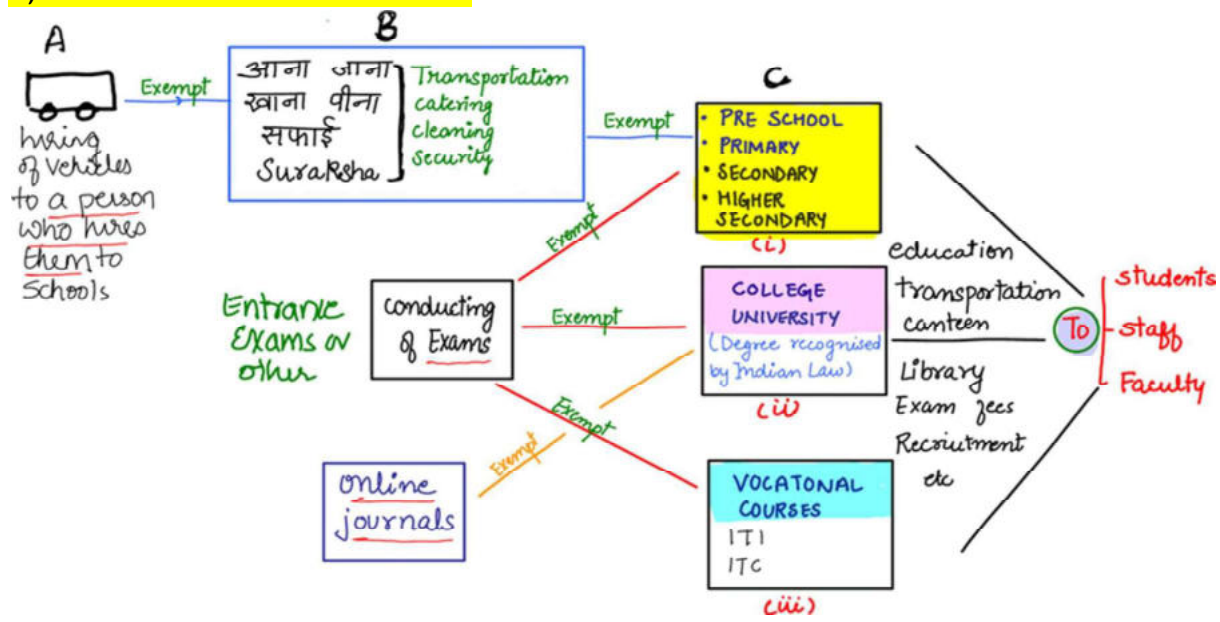 A
B
C
Exempt
hiring
of vehicles
to a person
who hires
them to
Schools
आना जाना
खाना पीना
सफाई
Suraksha
Transportation
catering
cleaning
security
Exempt
• PRE SCHOOL
• PRIMARY
• SECONDARY
• HIGHER
SECONDARY
(i)
Exempt
Entrance
Exams or
other
conducting
of Exams
Exempt
COLLEGE
UNIVERSITY
(Degree recognised
by Indian Law)
(ii)
Exempt
Exempt
online
journals
VOCATONAL
COURSES
ITI
ITC
(iii)
education
transportation
canteen
Library
Exam fees
Recriutment
etc
To
students
staff
Faculty